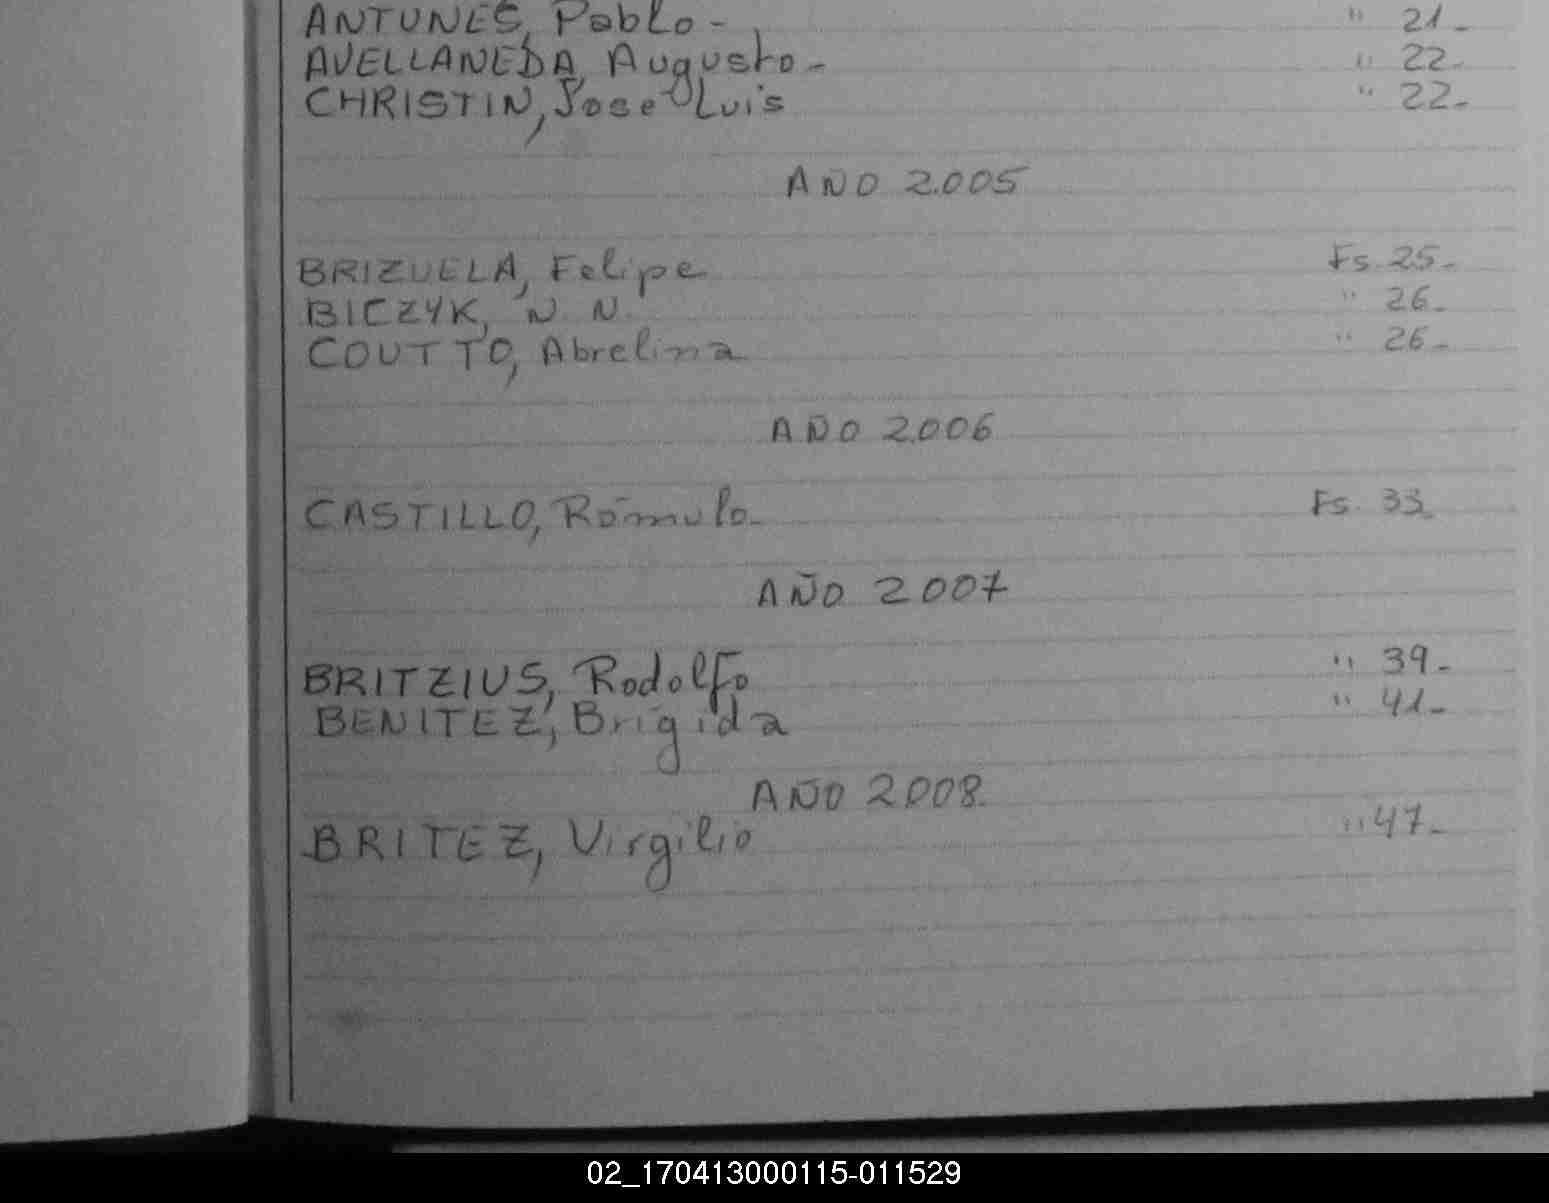 ANTUNES, Pablo - " 21-
AVELLANEDA, Augusto - " 22-
CHRISTIN, Jose Luis " 22-
AÑO 2.005
BRIZUELA, Felipe Fs. 25-
BICZYK, N. N. " 26-
COUTTO, Abrelina " 26-
AÑO 2.006
CASTILLO, Rómulo- Fs. 33-
AÑO 2007
BRITZIUS, Rodolfo " 39-
BENITEZ, Brígida " 41-
AÑO 2008.
BRITEZ, Virgilio " 47-
02_170413000115-011529